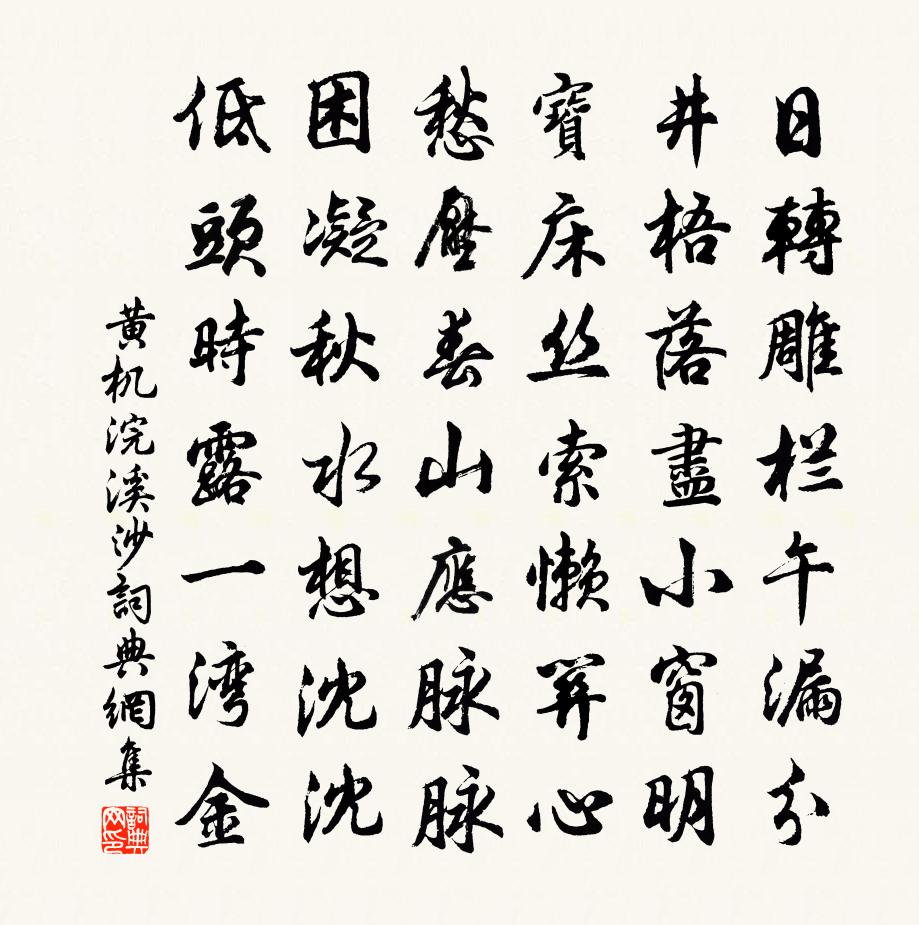 日轉雕栏午漏分
井梧落盡小窗明
寶床丝索懒笄心
愁壓春山應脉脉
困凝秋水想沈沈
低頭時露一湾金
黄机浣溪沙詞典網集
詞典网印